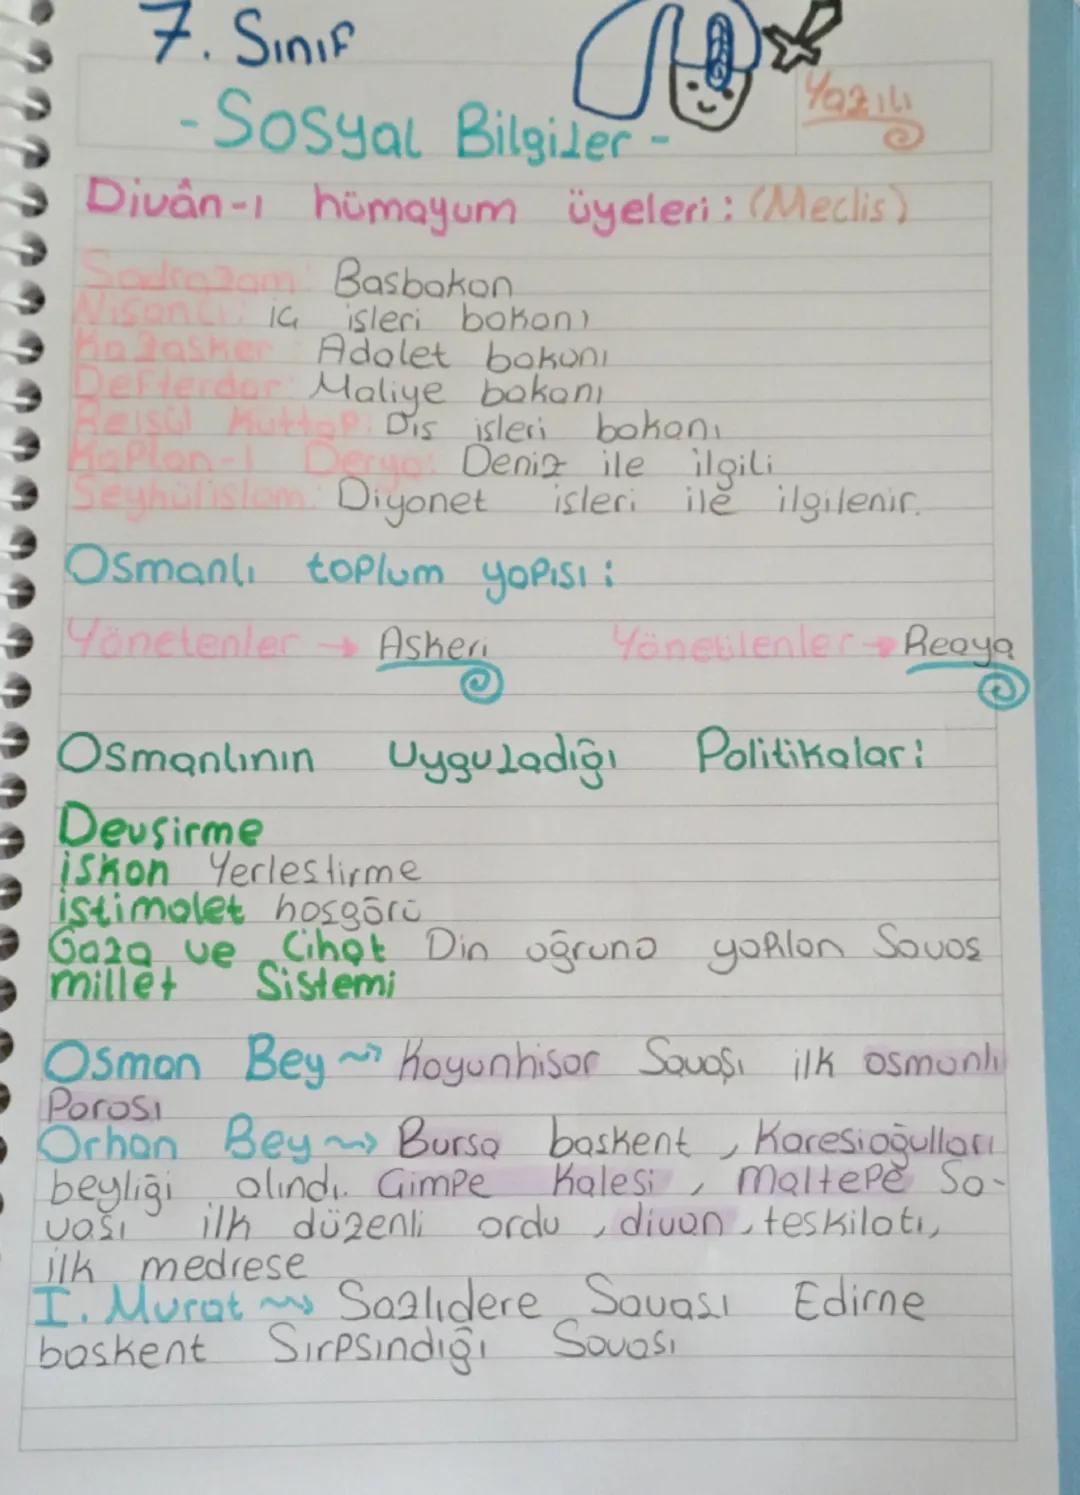 7. Sınıf
- Sosyal Bilgiler -
Yazılı
Divân-ı hümayum üyeleri: (Meclis)
Sadrazam: Basbakan
Nisancı: iç isleri bakanı
Kazasker Adalet bakanı
Defterdar: Maliye bakanı
Reisül Kuttap: Dıs isleri bakanı
Kaptan-ı Derya: Deniz ile ilgili
Seyhülislam: Diyanet isleri ile ilgilenir.
Osmanlı toplum yapısı:
Yönetenler → Askeri Yönetilenler → Reaya
Osmanlının Uyguladığı Politikalar:
Devşirme
iskan Yerlestirme
istimalet hosgörü
Gaza ve Cihat Din uğruna yapılan Savas
millet Sistemi
Osman Bey ~> Koyunhisar Savaşı ilk osmanlı
Parası
Orhan Bey ~> Bursa baskent, Karesioğulları
beyliği alındı. Gimpe Kalesi, maltepe Sa-
vaşı ilk düzenli ordu, divan, teskilatı,
ilk medrese
I. Murat ~> Sazlıdere Savası Edirne
baskent Sırpsındığı Savası